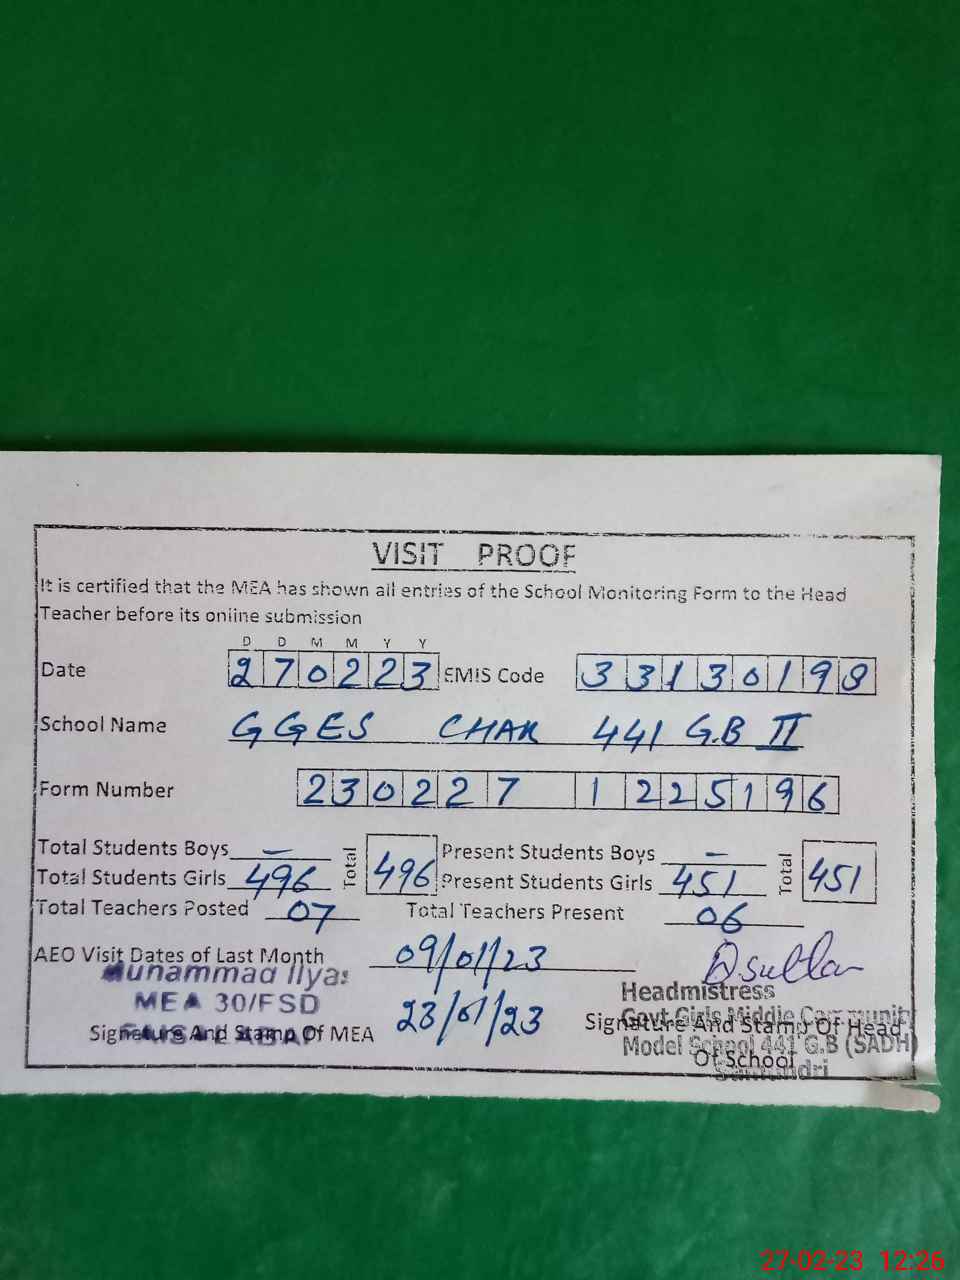 VISIT PROOF
It is certified that the MEA has shown all entries of the School Monitoring Form to the Head
Teacher before its online submission
D D M M Y Y
Date 270223 EMIS Code 33130198
School Name GGES CHAK 441 G.B II
Form Number 230227 1225196
Total Students Boys – Total 496 Present Students Boys – Total 451
Total Students Girls 496 Present Students Girls 451
Total Teachers Posted 07 Total Teachers Present 06
AEO Visit Dates of Last Month 09/01/23
23/01/23
Muhammad Ilyas
MEA 30/FSD
FAISALABAD
Signature And Stamp Of MEA
Headmistress
Govt Girls Middle Community
Model School 441 G.B (SADH)
Samundri
Signature And Stamp Of Head
Of School
27-02-23 12:26